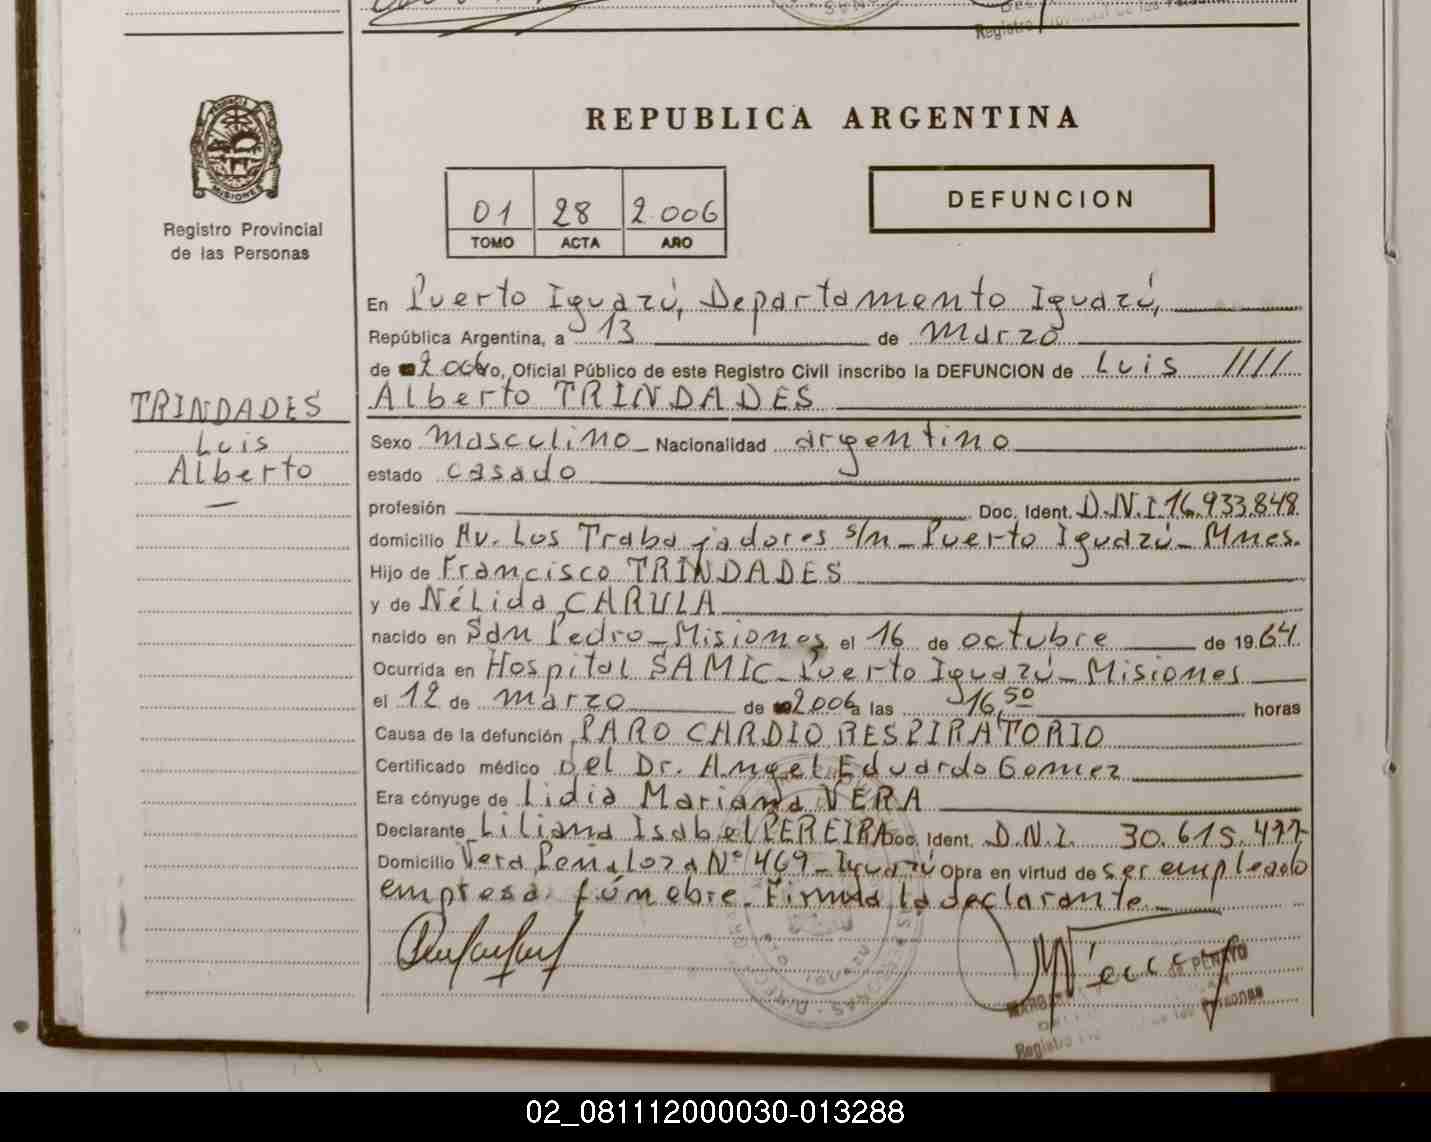 Registro Provincial de las Personas
REPUBLICA ARGENTINA
MISIONES
Registro Provincial
de las Personas
01 28 2.006
TOMO ACTA AÑO
DEFUNCION
En Puerto Iguazú, Departamento Iguazú,
República Argentina, a 13 de marzo
de 2.006 yo, Oficial Público de este Registro Civil inscribo la DEFUNCION de Luis ////
Alberto TRINDADES
TRINDADES
Luis
Alberto
Sexo masculino Nacionalidad argentino
estado casado
profesión Doc. Ident. D.N.I 16.933.848
domicilio Av. Los Trabajadores s/n - Puerto Iguazú - Mnes.
Hijo de Francisco TRINDADES
y de Nélida CARULA
nacido en San Pedro - Misiones el 16 de octubre de 1964
Ocurrida en Hospital SAMIC - Puerto Iguazú - Misiones
el 12 de marzo de 2006 a las 16,50 horas
Causa de la defunción PARO CARDIO RESPIRATORIO
Certificado médico Del Dr. Angel Eduardo Gomez
Era cónyuge de Lidia Mariana VERA
Declarante Liliana Isabel PEREIRA Doc. Ident. D.N.I. 30.615.477
Domicilio Vera Peñaloza N° 469 - Iguazú Obra en virtud de ser empleado
empresa fúnebre. Firma la declarante
de PERAYO
Registro de las Personas
02_081112000030-013288